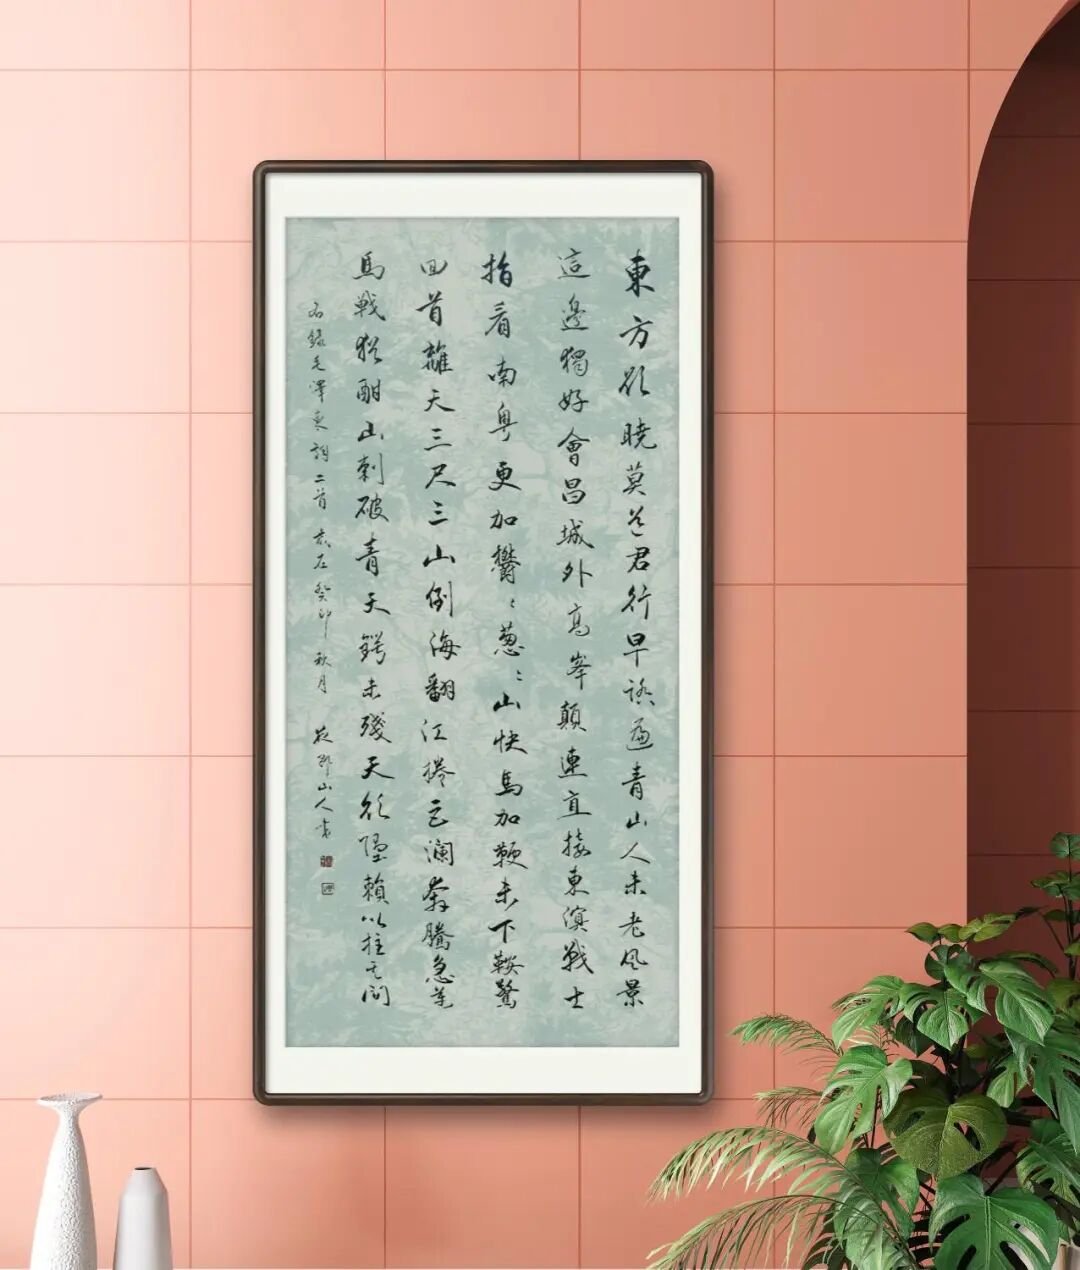 東方欲曉莫道君行早踏遍青山人未老風景
這邊獨好會昌城外高峯顛連直接東溟戰士
指看南粵更加欝〻葱〻山快馬加鞭未下鞍驚
回首離天三尺三山倒海翻江捲巨瀾奔騰急萬
馬戰猶酣山刺破青天鍔未殘天欲墮賴以拄其間
右錄毛澤東詞二首 歲在癸卯秋月 山人書